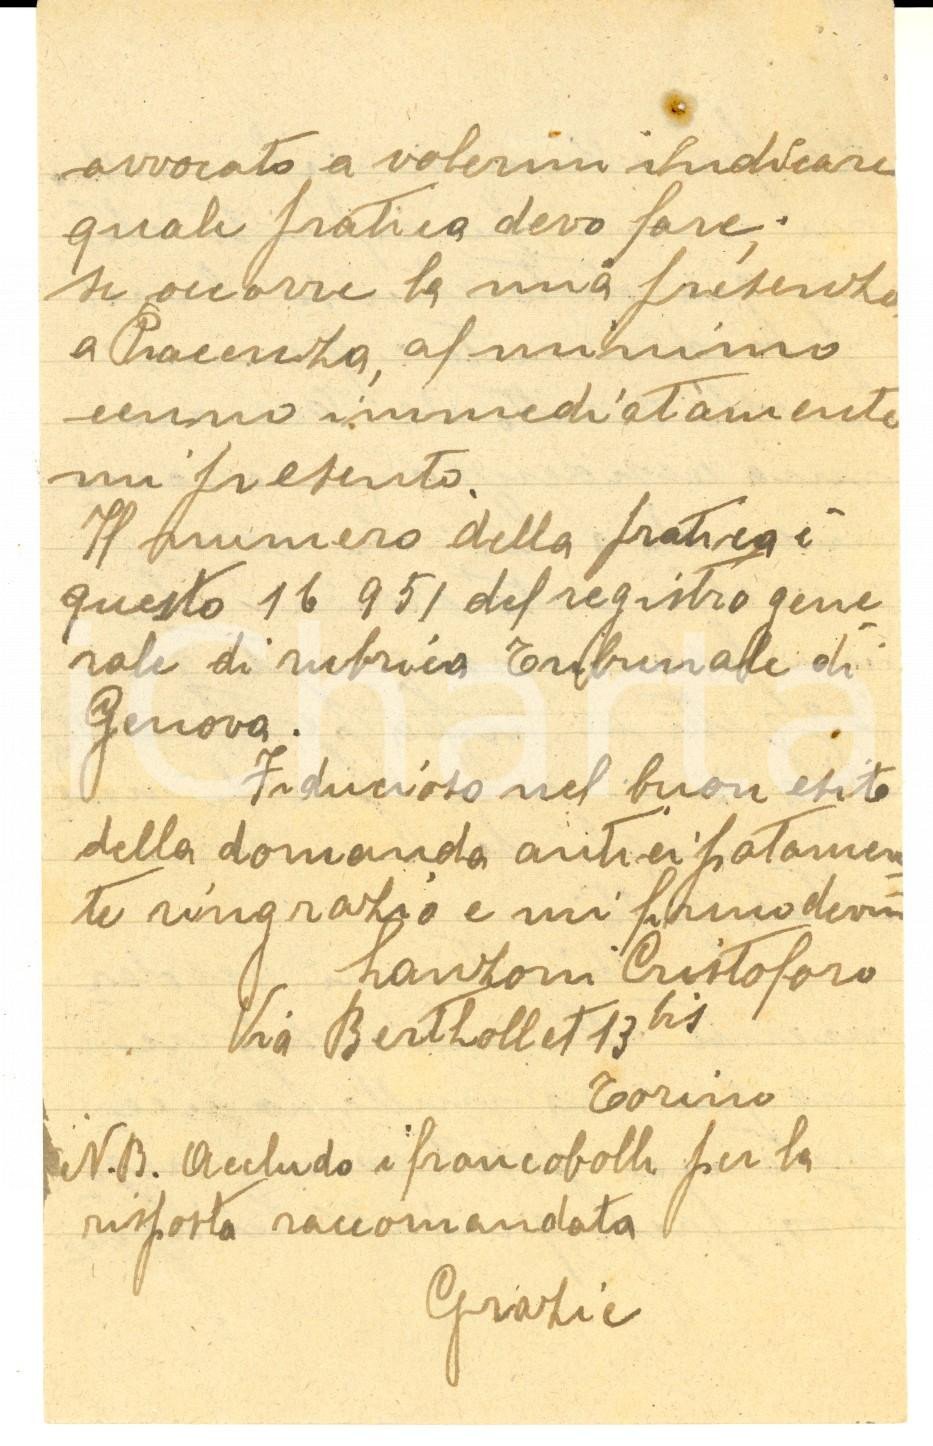 avvocato a volermi indicare
quale pratica devo fare,
se occorre la mia presenza
a Piacenza, al minimo
cenno immediatamente
mi presento.
Il numero della pratica è
questo 16 951 del registro gene
rale di rubrica Tribunale di
Genova.
Fiducioso nel buon esito
della domanda anticipatamen
te ringrazio e mi firmo devm
Lanzoni Cristoforo
Via Berthollet 13 bis
Torino
N.B. Accludo i francobolli per la
risposta raccomandata
Grazie
iCharta